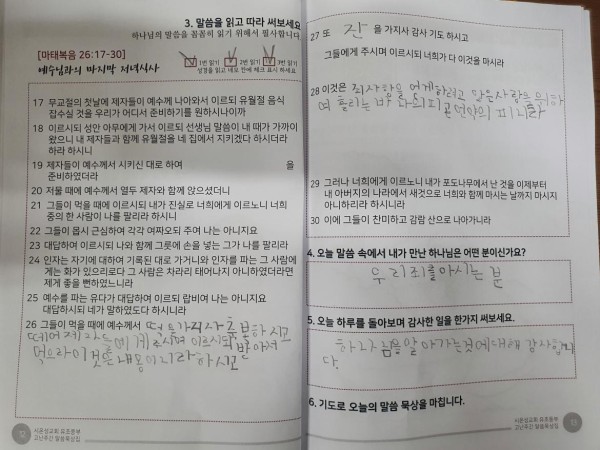 3. 말씀을 읽고 따라 써보세요
하나님의 말씀을 꼼꼼히 읽기 위해서 필사합니다.
[마태복음 26:17-30]
예수님과의 마지막 저녁식사
1번 읽기 2번 읽기 3번 읽기
성경을 읽고 네모 안에 체크 표시 하세요
17 무교절의 첫날에 제자들이 예수께 나아와서 이르되 유월절 음식
잡수실 것을 우리가 어디서 준비하기를 원하시나이까
18 이르시되 성안 아무에게 가서 이르되 선생님 말씀이 내 때가 가까이
왔으니 내 제자들과 함께 유월절을 네 집에서 지키겠다 하시더라
하라 하시니
19 제자들이 예수께서 시키신 대로 하여 을
준비하였더라
20 저물 때에 예수께서 열두 제자와 함께 앉으셨더니
21 그들이 먹을 때에 이르시되 내가 진실로 너희에게 이르노니 너희
중의 한 사람이 나를 팔리라 하시니
22 그들이 몹시 근심하여 각각 여짜오되 주여 나는 아니지요
23 대답하여 이르시되 나와 함께 그릇에 손을 넣는 그가 나를 팔리라
24 인자는 자기에 대하여 기록된 대로 가거니와 인자를 파는 그 사람에
게는 화가 있으리로다 그 사람은 차라리 태어나지 아니하였더라면
제게 좋을 뻔하였느니라
25 예수를 파는 유다가 대답하여 이르되 랍비여 나는 아니지요
대답하시되 네가 말하였도다 하시니라
26 그들이 먹을 때에 예수께서 떡을 가지사 축복하시고
떼어 제자들에게 주시며 이르시되 받아서
먹으라 이것은 내 몸이니라 하시고
12
시온성교회 유초등부
고난주간 말씀묵상집
27 또 잔 을 가지사 감사 기도 하시고
그들에게 주시며 이르시되 너희가 다 이것을 마시라
28 이것은 죄사함을 얻게하려고 많은 사람을 위하
여 흘리는 바 나의 피 곧 언약의 피니라
29 그러나 너희에게 이르노니 내가 포도나무에서 난 것을 이제부터
내 아버지의 나라에서 새것으로 너희와 함께 마시는 날까지 마시지
아니하리라 하시니라
30 이에 그들이 찬미하고 감람 산으로 나아가니라
4. 오늘 말씀 속에서 내가 만난 하나님은 어떤 분이신가요?
우리 죄를 아시는 분
5. 오늘 하루를 돌아보며 감사한 일을 한가지 써보세요.
하나님을 알아가는것에 대해 감사합니
다.
6. 기도로 오늘의 말씀 묵상을 마칩니다.
시온성교회 유초등부
고난주간 말씀묵상집
13